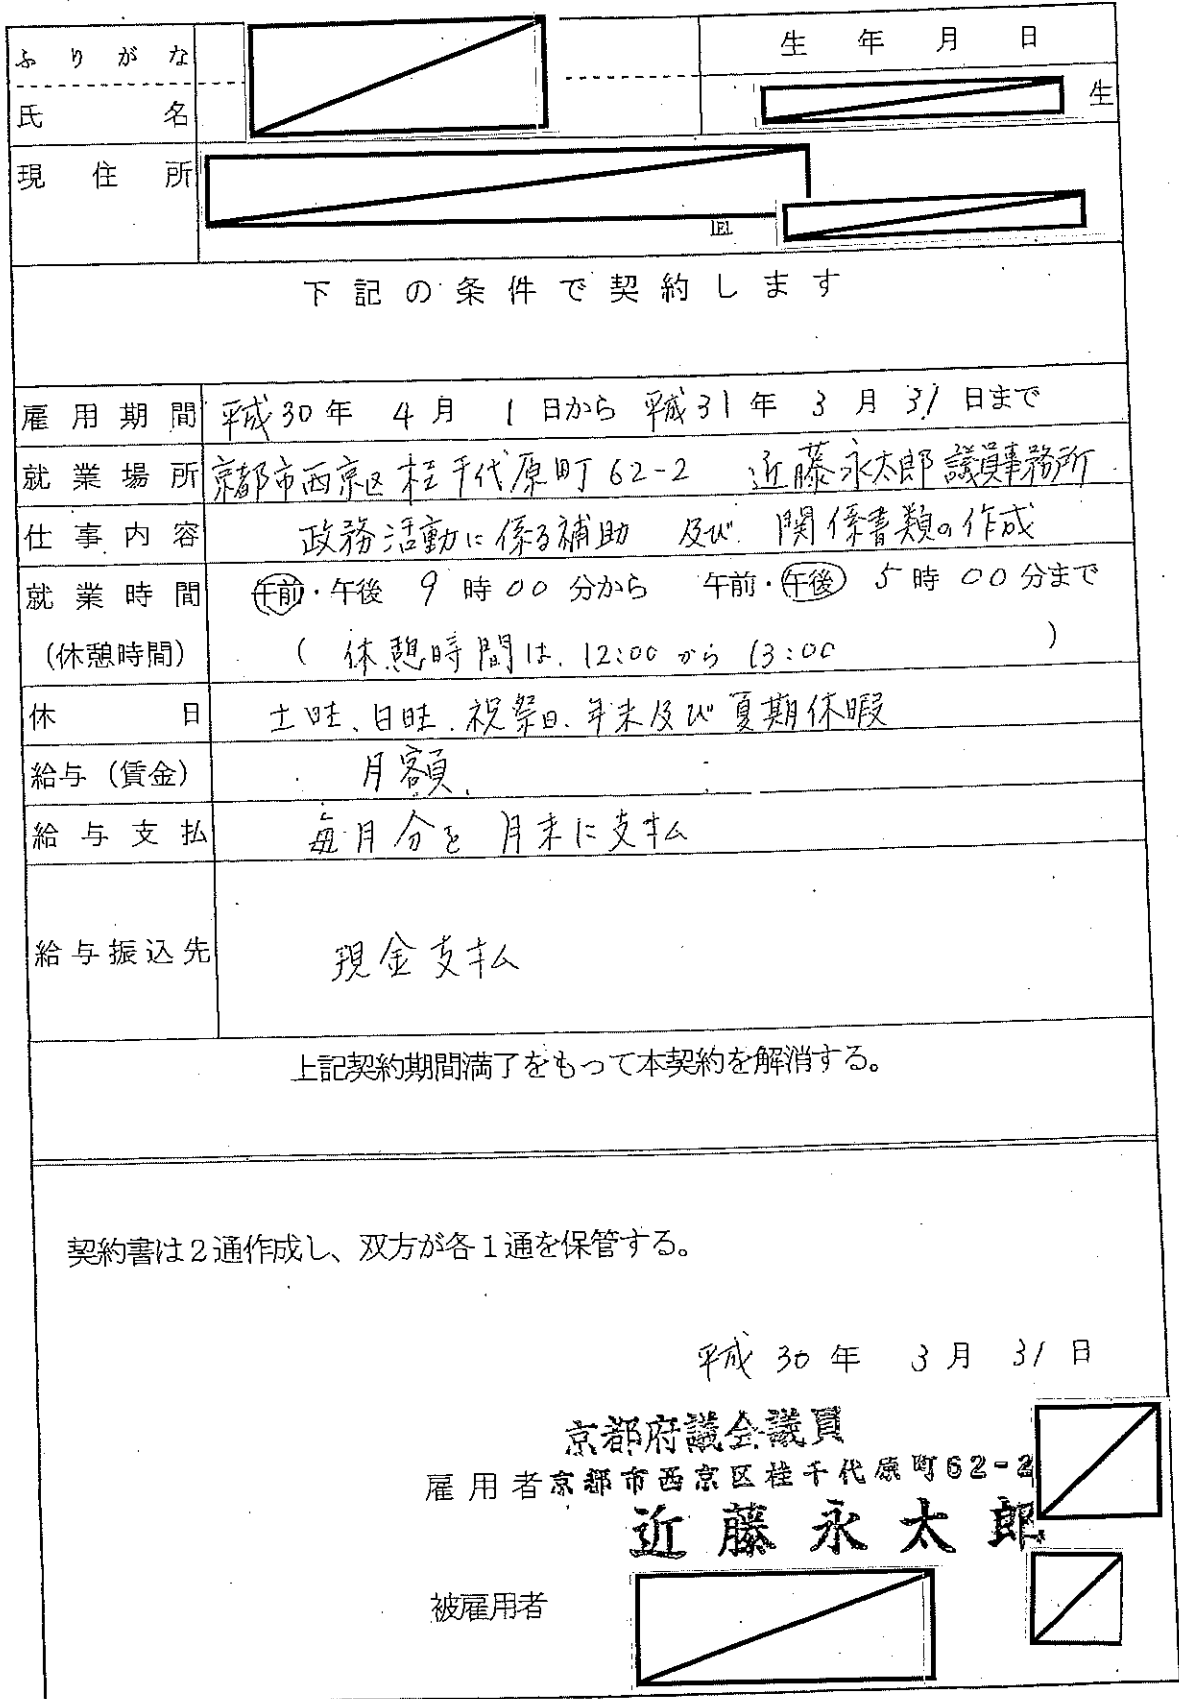 ふりがな
生年月日
氏名
生
現住所
TEL
下記の条件で契約します
雇用期間 平成30年 4月 1日から 平成31年 3月 31日まで
就業場所 京都市西京区桂千代原町62-2 近藤永太郎議員事務所
仕事内容 政務活動に係る補助 及び 関係書類の作成
就業時間 午前・午後 9時00分から 午前・午後 5時00分まで
(休憩時間) ( 休憩時間は、12:00から13:00 )
休日 土曜、日曜、祝祭日、年末及び夏期休暇
給与(賃金) 月額
給与支払 毎月分を月末に支払
給与振込先 現金支払
上記契約期間満了をもって本契約を解消する。
契約書は2通作成し、双方が各1通を保管する。
平成30年 3月 31日
京都府議会議員
雇用者 京都市西京区桂千代原町62-2
近藤永太郎
被雇用者